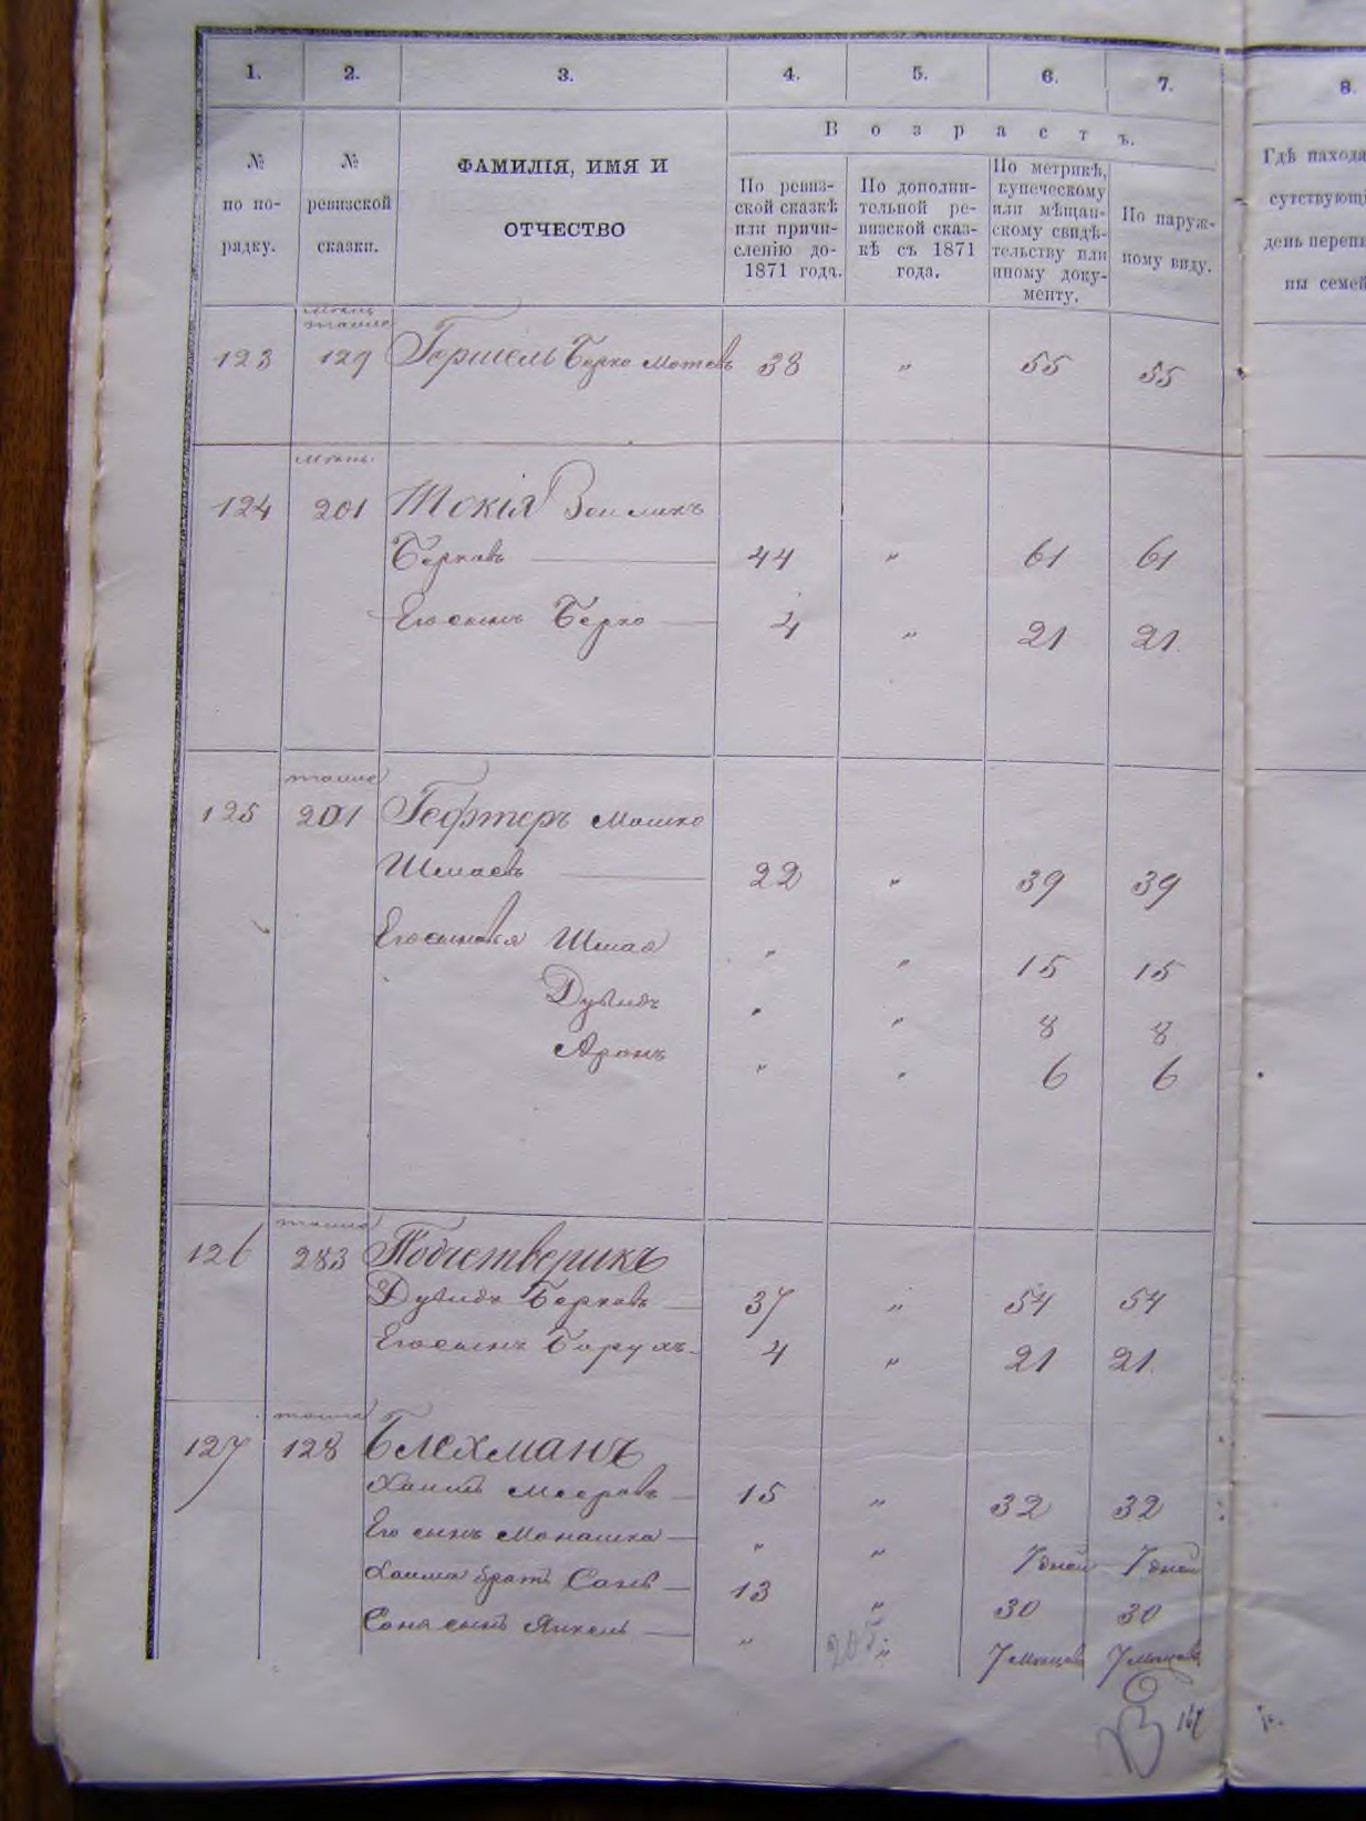 1. 2. 3. 4. 5. 6. 7. 8.
В о з р а с т ъ.
№ по по-рядку.
№ ревизской сказки.
ФАМИЛІЯ, ИМЯ И
ОТЧЕСТВО
По ревиз-
ской сказкѣ
или причи-
сленію до-
1871 года.
По дополни-
тельной ре-
визской сказ-
кѣ съ 1871
года.
По метрикѣ,
купеческому
или мѣщан-
скому свидѣ-
тельству или
иному доку-
менту.
По наруж-
ному виду.
Гдѣ находя
сутствующі
день перепи
ны семей
123 129 Гершель Берко Мотевъ 38 " 55 55
124 201
Беркавъ 44 " 61 61
Его сынъ Берко 4 " 21 21.
125 201 Гефтеръ Мошко
Шмаевъ 22 " 39 39
Его сыновья Шмая " " 15 15
Дувидъ " " 8 8
Аронъ " " 6 6
126 283 Подчетверикъ
Дувидъ Беркавъ 37 " 54 54
Его сынъ Борухъ 4 " 21 21.
127 128 Блехманъ
Хаимъ Мееровъ 15 " 32 32
Его сынъ Монашка " " 7 дней 7 дней
Хаима братъ 13 " 30 30
сынъ Янкель " " 7 месяцевъ 7 месяцевъ
167